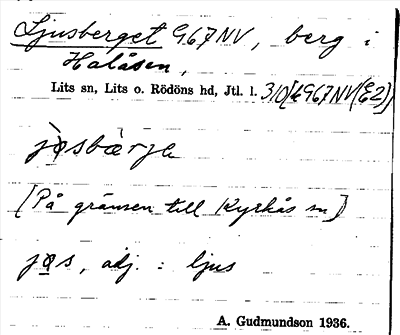 Ljusberget 967NV, berg i
Halåsen,
Lits sn, Lits o. Rödöns hd, Jtl. l. 310
jøsbærje
[På gränsen till Kyrkås sn]
jøs, adj. : ljus
A. Gudmundson 1936.